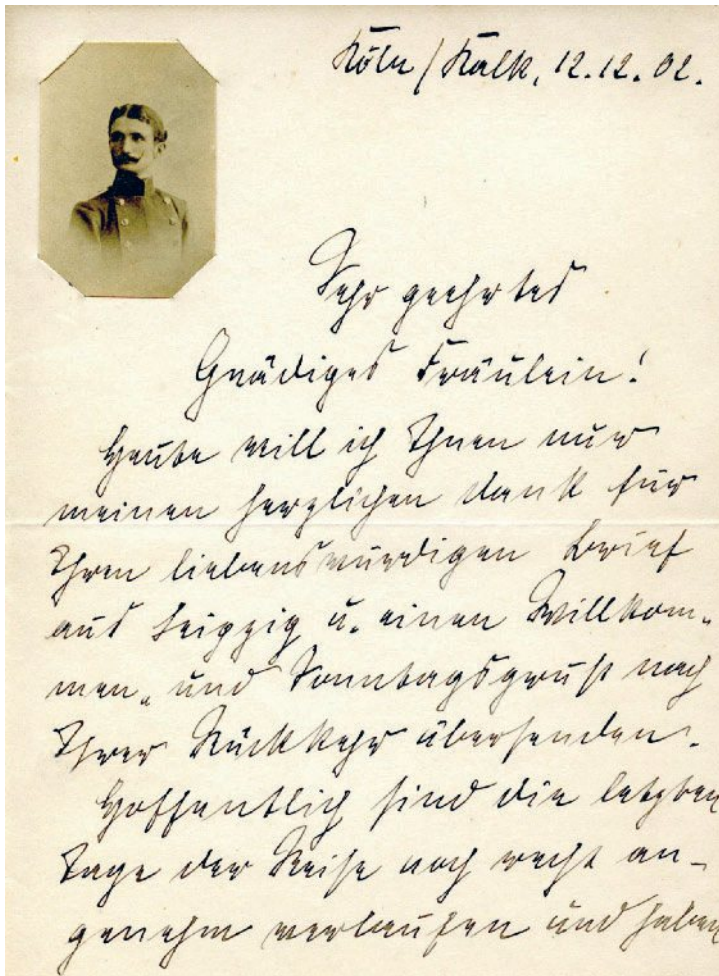 Köln/Kalk, 12.12.02.
Sehr geehrtes
Gnädiges Fräulein!
Heute will ich Ihnen nur
meinen herzlichen Dank für
Ihren liebenswürdigen Brief
aus Leipzig u. einen Willkom-
men- und Sonntagsgruß nach
Ihrer Rückkehr übersenden.
Hoffentlich sind die letzten
Tage der Reise noch recht an-
genehm verlaufen und haben